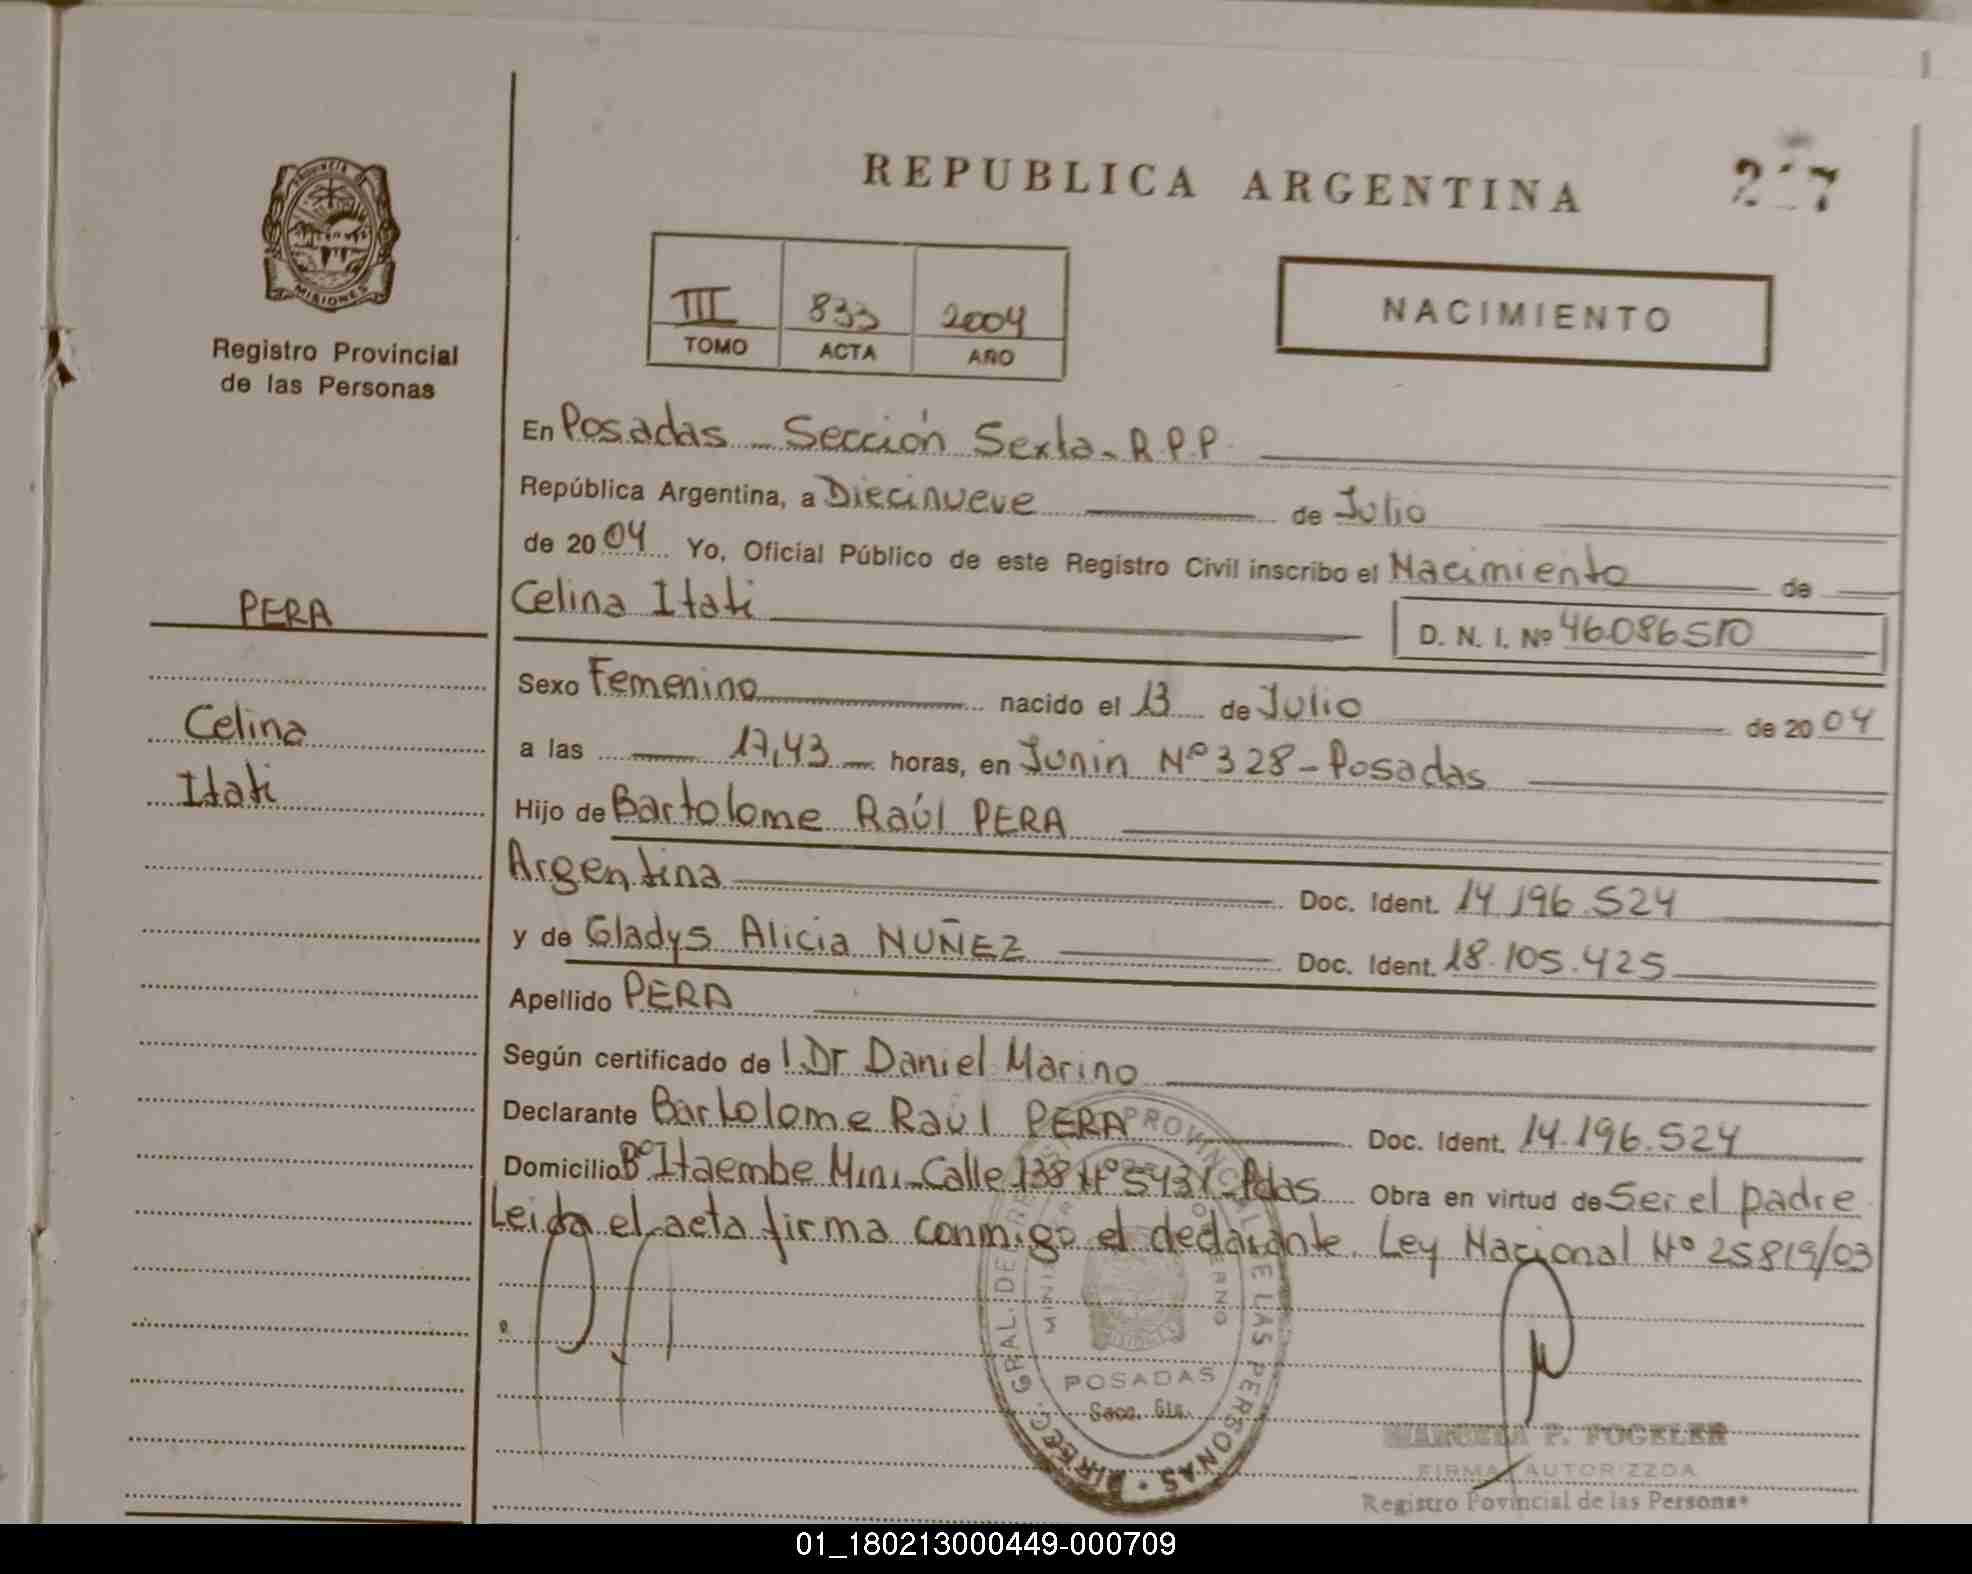 REPUBLICA ARGENTINA
PROVINCIA DE
MISIONES
Registro Provincial
de las Personas
III 833 2004
TOMO ACTA AÑO
NACIMIENTO
En Posadas - Sección Sexta - R.P.P.
República Argentina, a Diecinueve de Julio
de 2004 Yo, Oficial Público de este Registro Civil inscribo el Nacimiento de
PERA
Celina Itati
D. N. I. Nº 46086510
Sexo Femenino nacido el 13 de Julio de 2004
Celina
a las 17,43 horas, en Junin Nº 328 - Posadas
Itati
Hijo de Bartolome Raúl PERA
Argentina Doc. Ident. 14.196.524
y de Gladys Alicia NUÑEZ Doc. Ident. 18.105.425
Apellido PERA
Según certificado de l Dr Daniel Marino
Declarante Bartolome Raúl PERA Doc. Ident. 14.196.524
Domicilio Bº Itaembe Mini - Calle 138 Nº Pdas Obra en virtud de Ser el padre
Leida el acta firma conmigo el declarante. Ley Nacional Nº 25819/03
DIRECC. GRAL. DE PROVINCIAL DE LAS PERSONAS
POSADAS
Secc. 6ta.
P. FOGELER
FIRMA AUTORIZZDA
Registro Povincial de las Personas
01_180213000449-000709